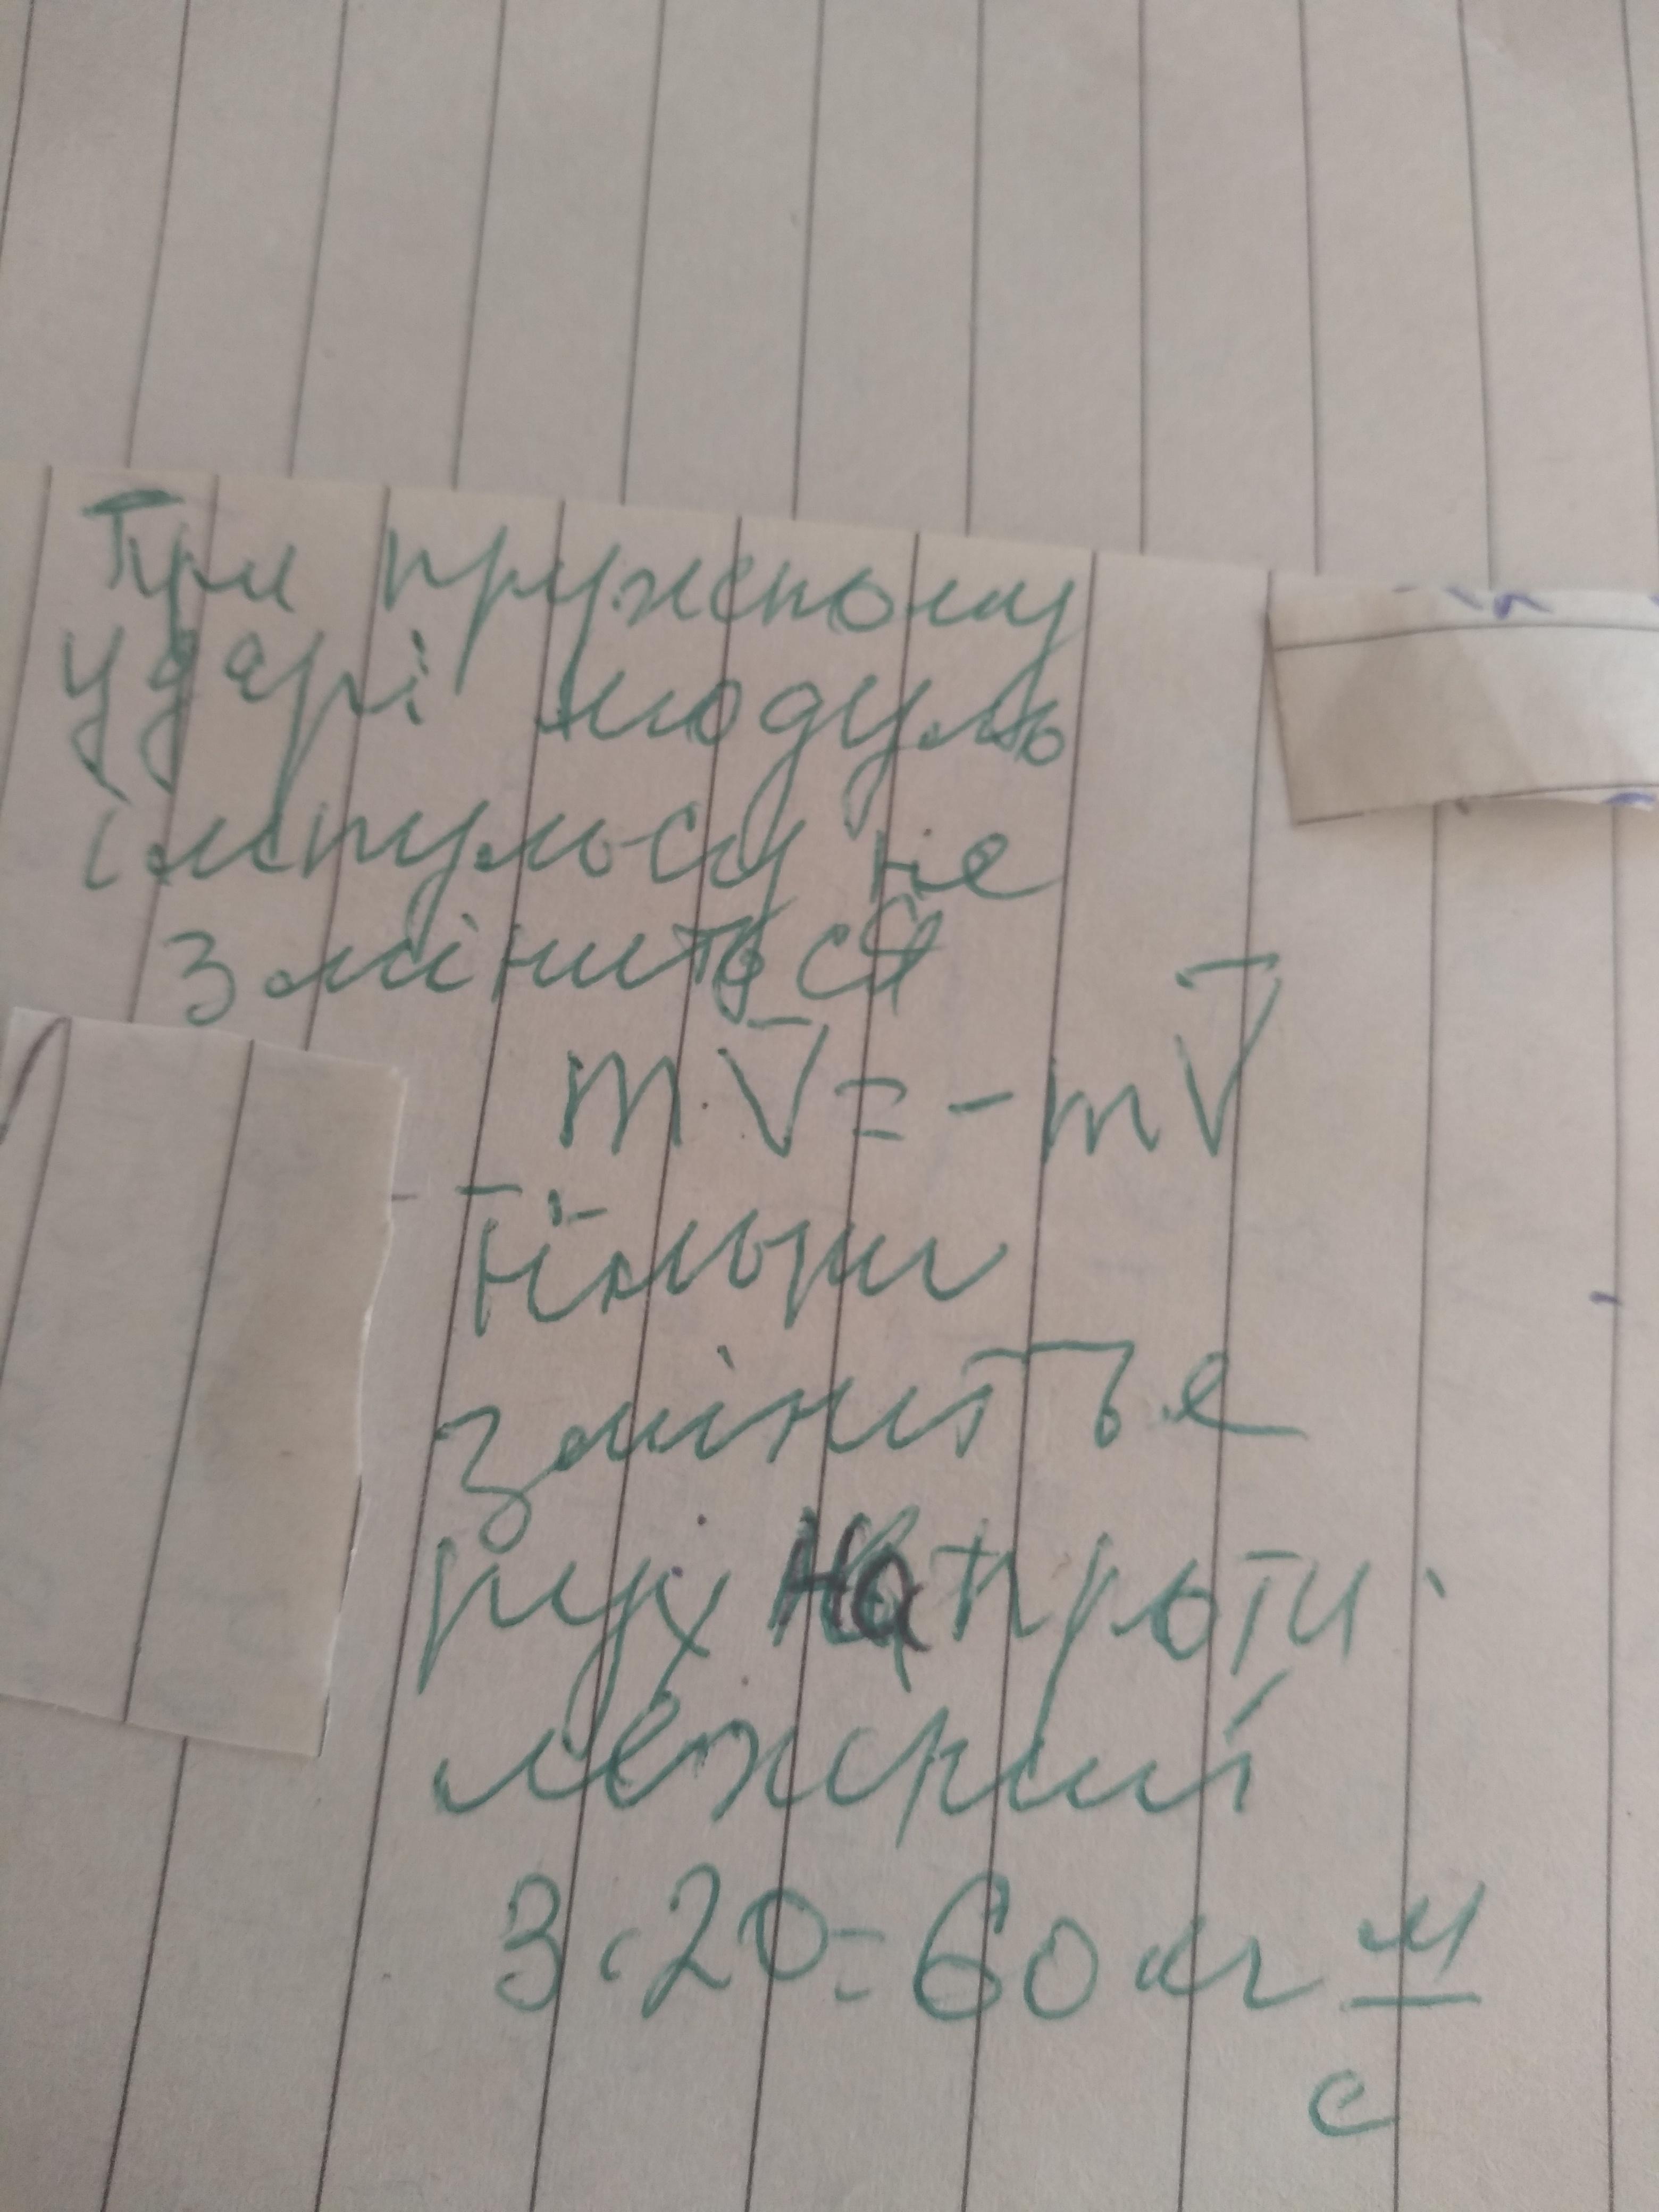 При пружному
ударі модуль
імпульсу не
зміниться
mV̅ = - mV̅
змінить е
рух на проти
лежний
3 · 20 = 60 кг м/с